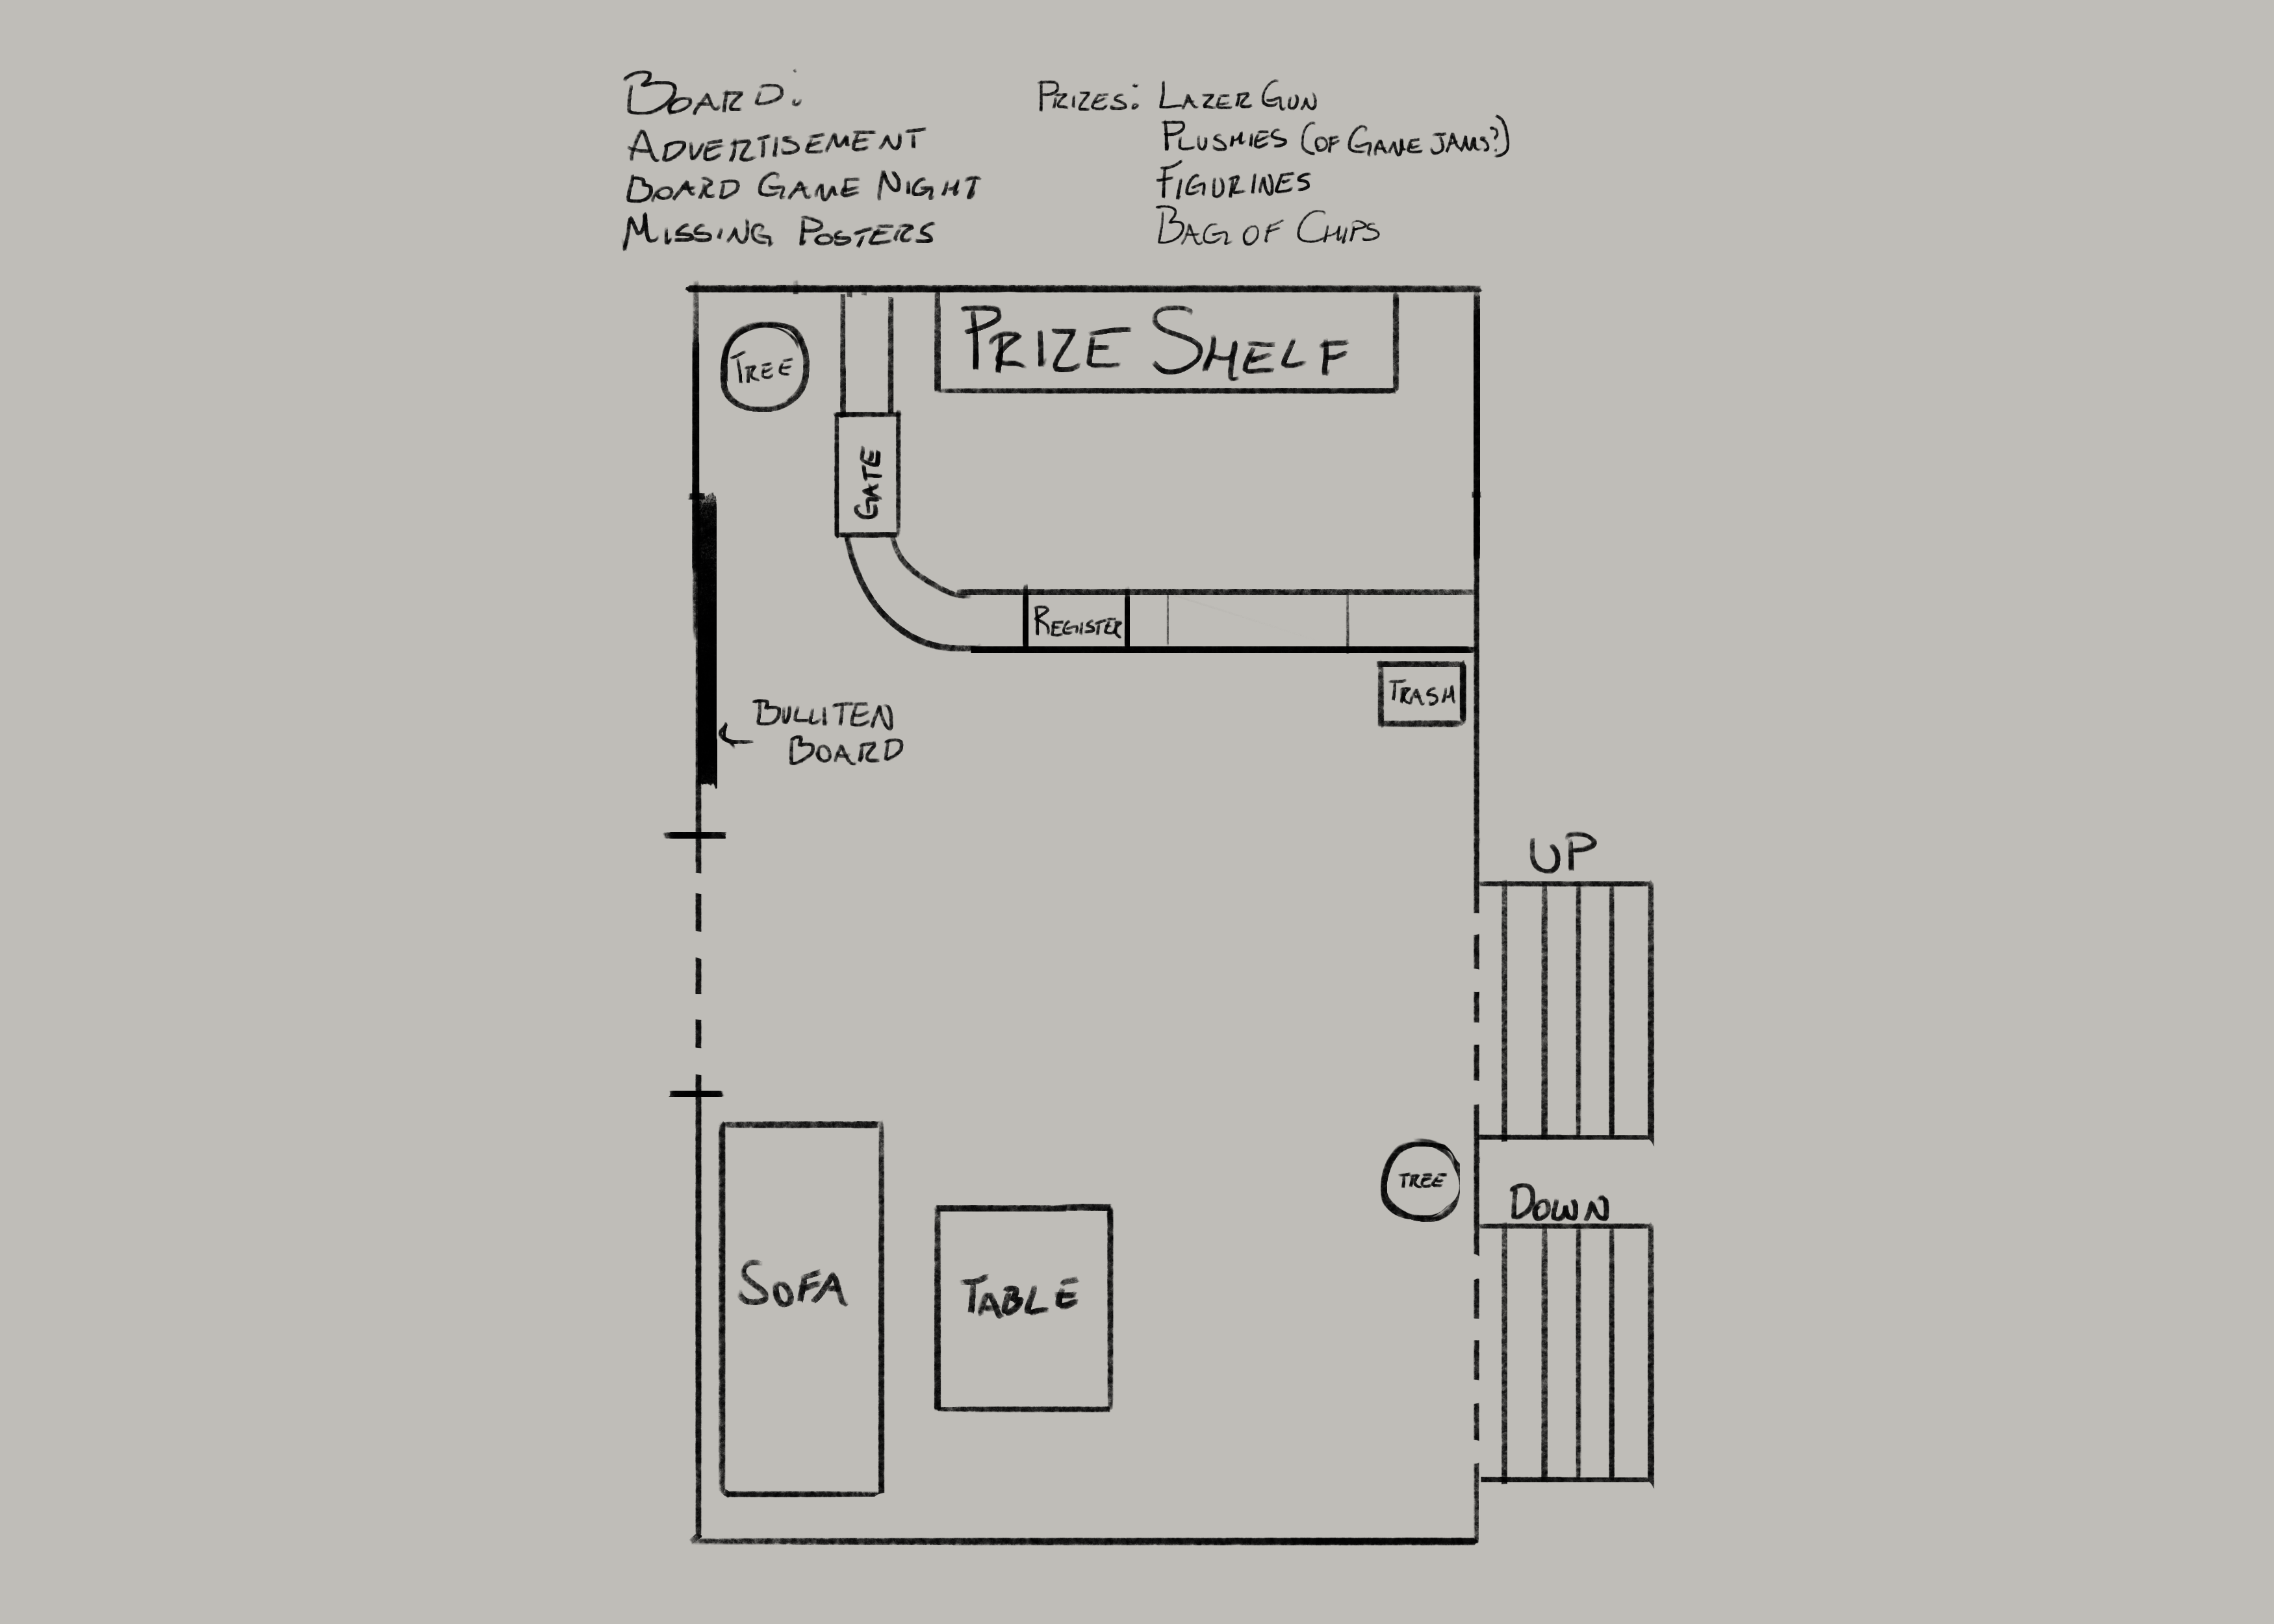 BOARD:
ADVERTISEMENT
BOARD GAME NIGHT
MISSING POSTERS
PRIZES: LAZER GUN
PLUSHIES (OF GAME JAMS?)
FIGURINES
BAG OF CHIPS
TREE
PRIZE SHELF
GATE
REGISTER
TRASH
BULLITEN
BOARD
UP
TREE
DOWN
SOFA
TABLE